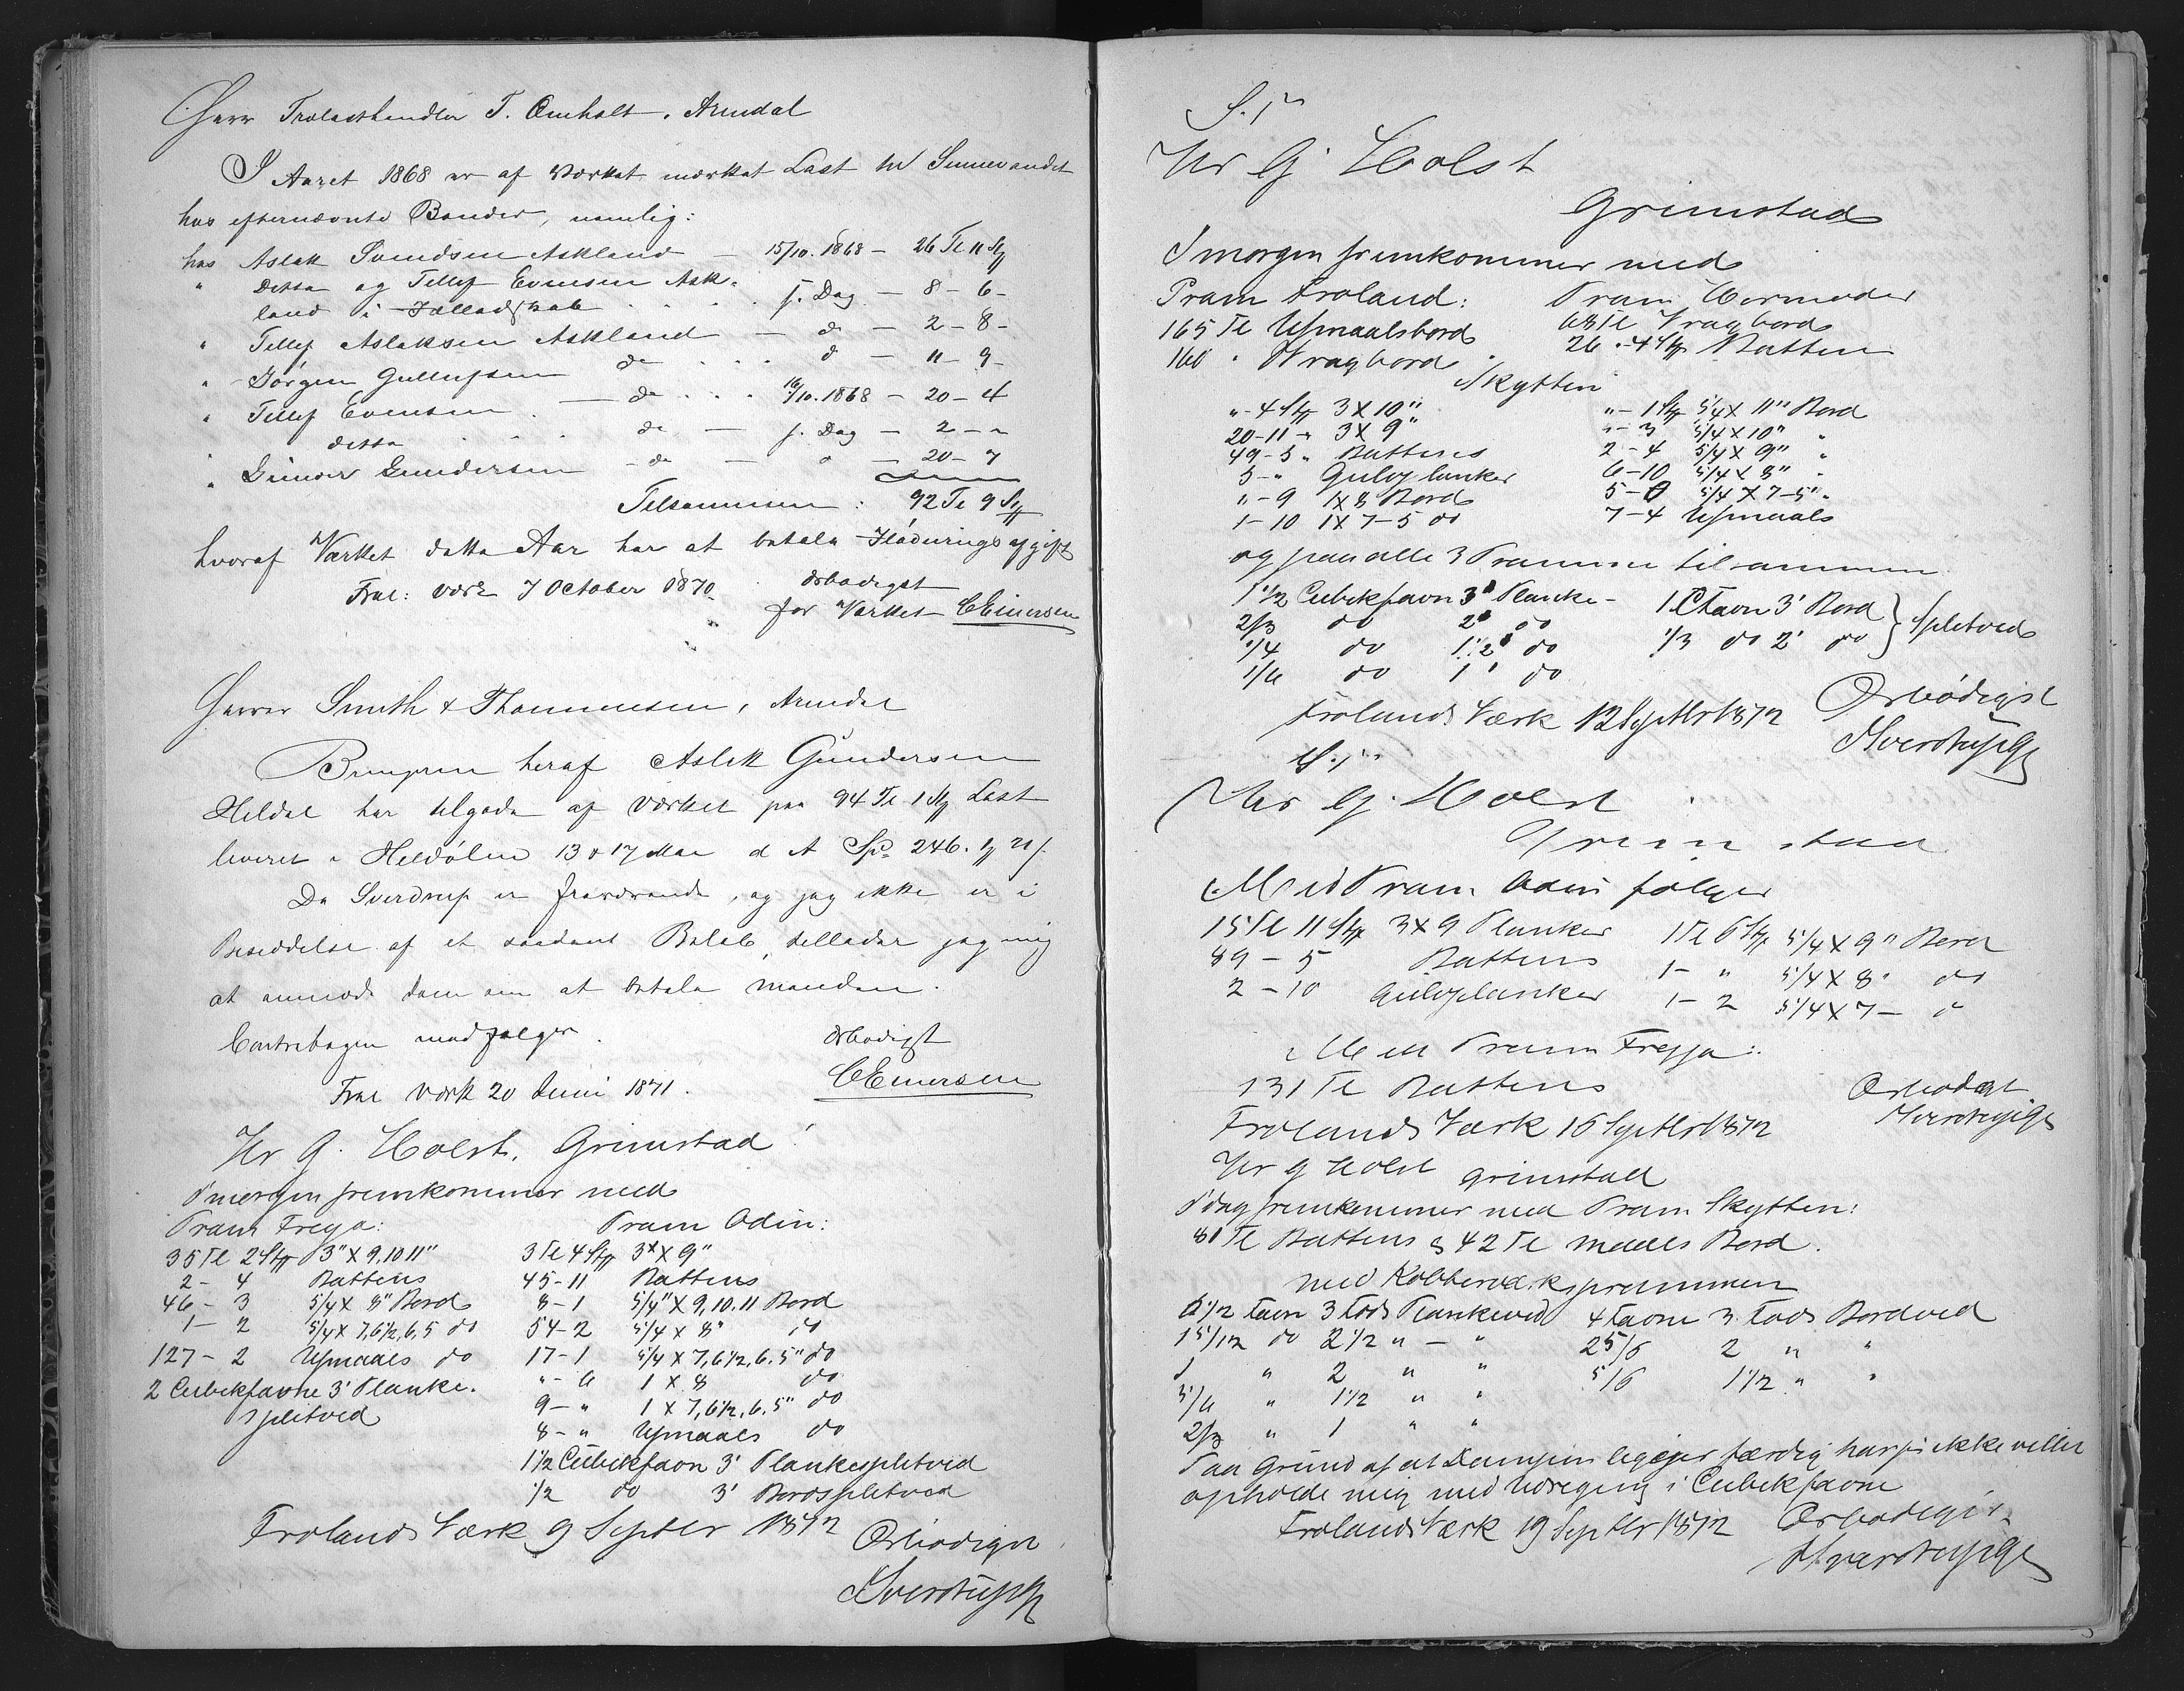 Herr Trælasthandler T. Omholt. Arendal
I Aaret 1868 er af Værket mærket Last ved Sennevandet
hos efternævnte Bønder, nemlig:
hos Aslak Svendsen Askland — 15/10. 1868 — 26 Tl 11 St
" Ditto og Tellef Evensen Ask-
land i Fælledskab . . . f. Dag — 8 - 6 -
" Tellef Aslaksen Askland — do — 2 - 8 -
" Jørgen Gullufsen do . . . do — 11 - 9 -
" Tellef Evensen . — do . . . 16/10. 1868 — 20 - 4
ditto . . . do — f. Dag — 2 - "
" Gunder Gundersen - do — " — 20 - 7
Tilsammen : 92 Tl 9 St
hvoraf Værket dette Aar har at betale Flødningsafgift
Frol: værk 7 October 1870. ærbødigst
for Værket CEinersen
Herrer Smith & Thommesen, Arendal
Bringeren heraf Aslak Gundersen
Heldal har tilgode af værket paa 94 Tl. 1 St Last
leveret i Heldølen 13 & 17 Mai d A Spd 246. 1 21 s.
Da Sverdrup er fraværende, og jeg ikke er i
Besiddelse af et saadant Beløb, tillader jeg mig
at anmode dem om at betale manden.
Contrabogen medfølger. ærbødigst
Frol værk 20 Juni 1871. CEinersen
Hr G. Holst, Grimstad!
Imorgen fremkommer med
Pram Freya: Pram Odin:
35 Tl 2 Stk 3" X 9, 10 11" 3 Tl 4 Stk 3" X 9"
2 - 4 Battens 45 - 11 Battens
46 - 3 5/4 X 8" Bord 8 - 1 5/4" X 9, 10. 11 Bord
1 - 2 5/4 X 7, 6 1/2, 6, 5 do 54 - 2 5/4 X 8" do
127 - 2 Usmaals do 17 - 1 5/4 X 7, 6 1/2, 6. 5" do
2 Cubikfavne 3' Planke- " - 6 1 X 8 do
splitved 9 - " 1 X 7, 6 1/2, 6. 5" do
8 - " Usmaals do
1 1/2 Cubikfavn 3' Plankesplitved
1/2 do 3' Bordsplitved
Frolands Værk 9 Septbr 1872 Ærbødigst
HSverdrup
S. T.
Hr G Holst
Grimstad
Imorgen fremkommer med
Pram Froland: Pram Hermoder
165 Tl Usmaalsbord 68 Tl Vragbord
160 " Vragbord 26 " 4 Stk Batten
Skytten
" - 4 Stk 3 X 10" " - 1 Stk 5/4 X 11" Bord
20 - 11 - 3 X 9" " - 3 5/4 X 10" "
49 - 5 " Battens 2 - 4 5/4 X 9" "
5 - " Gulvplanker 6 - 10 5/4 X 8" "
" - 9 1 X 8 Bord 5 - 0 5/4 X 7 - 5" "
1 - 10 1 X 7 - 5 do 7 - 4 Usmaals
og paa alle 3 Prammene tilsammen
1 1/2 Cubikfavn 3' Planke - 1 C Favn 3' Bord } Splitved
2/3 do 2' do 1/3 do 2' do
1/4 do 1 1/2' do
1/6 do 1' do
Frolands Værk 12 Septbr 1872 Ærbødigst
HSverdrup
S. T.
Hr G. Holst
Grimstad
Med Pram Odin følger
15 Tl 11 Stk 3 X 9 Planker 1 Tl 6 Stk 5/4 X 9" Bord
89 - 5 Battens 1 - " 5/4 X 8" do
2 - 10 Gulvplanker 1 - 2 5/4 X 7 - "
Med Pram Freyja:
131 Tl Battens Ærbødigst
Frolands Værk 16 Septbr 1872 HSverdrup
Hr G Holst Grimstad
Idag fremkommer med Pram Skytten:
81 Tl Battens & 42 Tl maals Bord.
med Kobberværksprammen
6 1/2 Favn 3 Fods Plankeved 4 Favne 3 Fods Bordved
1 5/12 do 2 1/2 " — " 2 5/6 2 " "
1 " 2 " " 5/6 1 1/2 " "
5/6 " 1 1/2 " "
2/3 " 1 " "
Paa Grund af at Dampen ligger færdig har jeg ikke villet
opholde mig med Udregning i Cubikfavne
Frolands Værk 19 Septbr 1872 Ærbødigst
HSverdrup